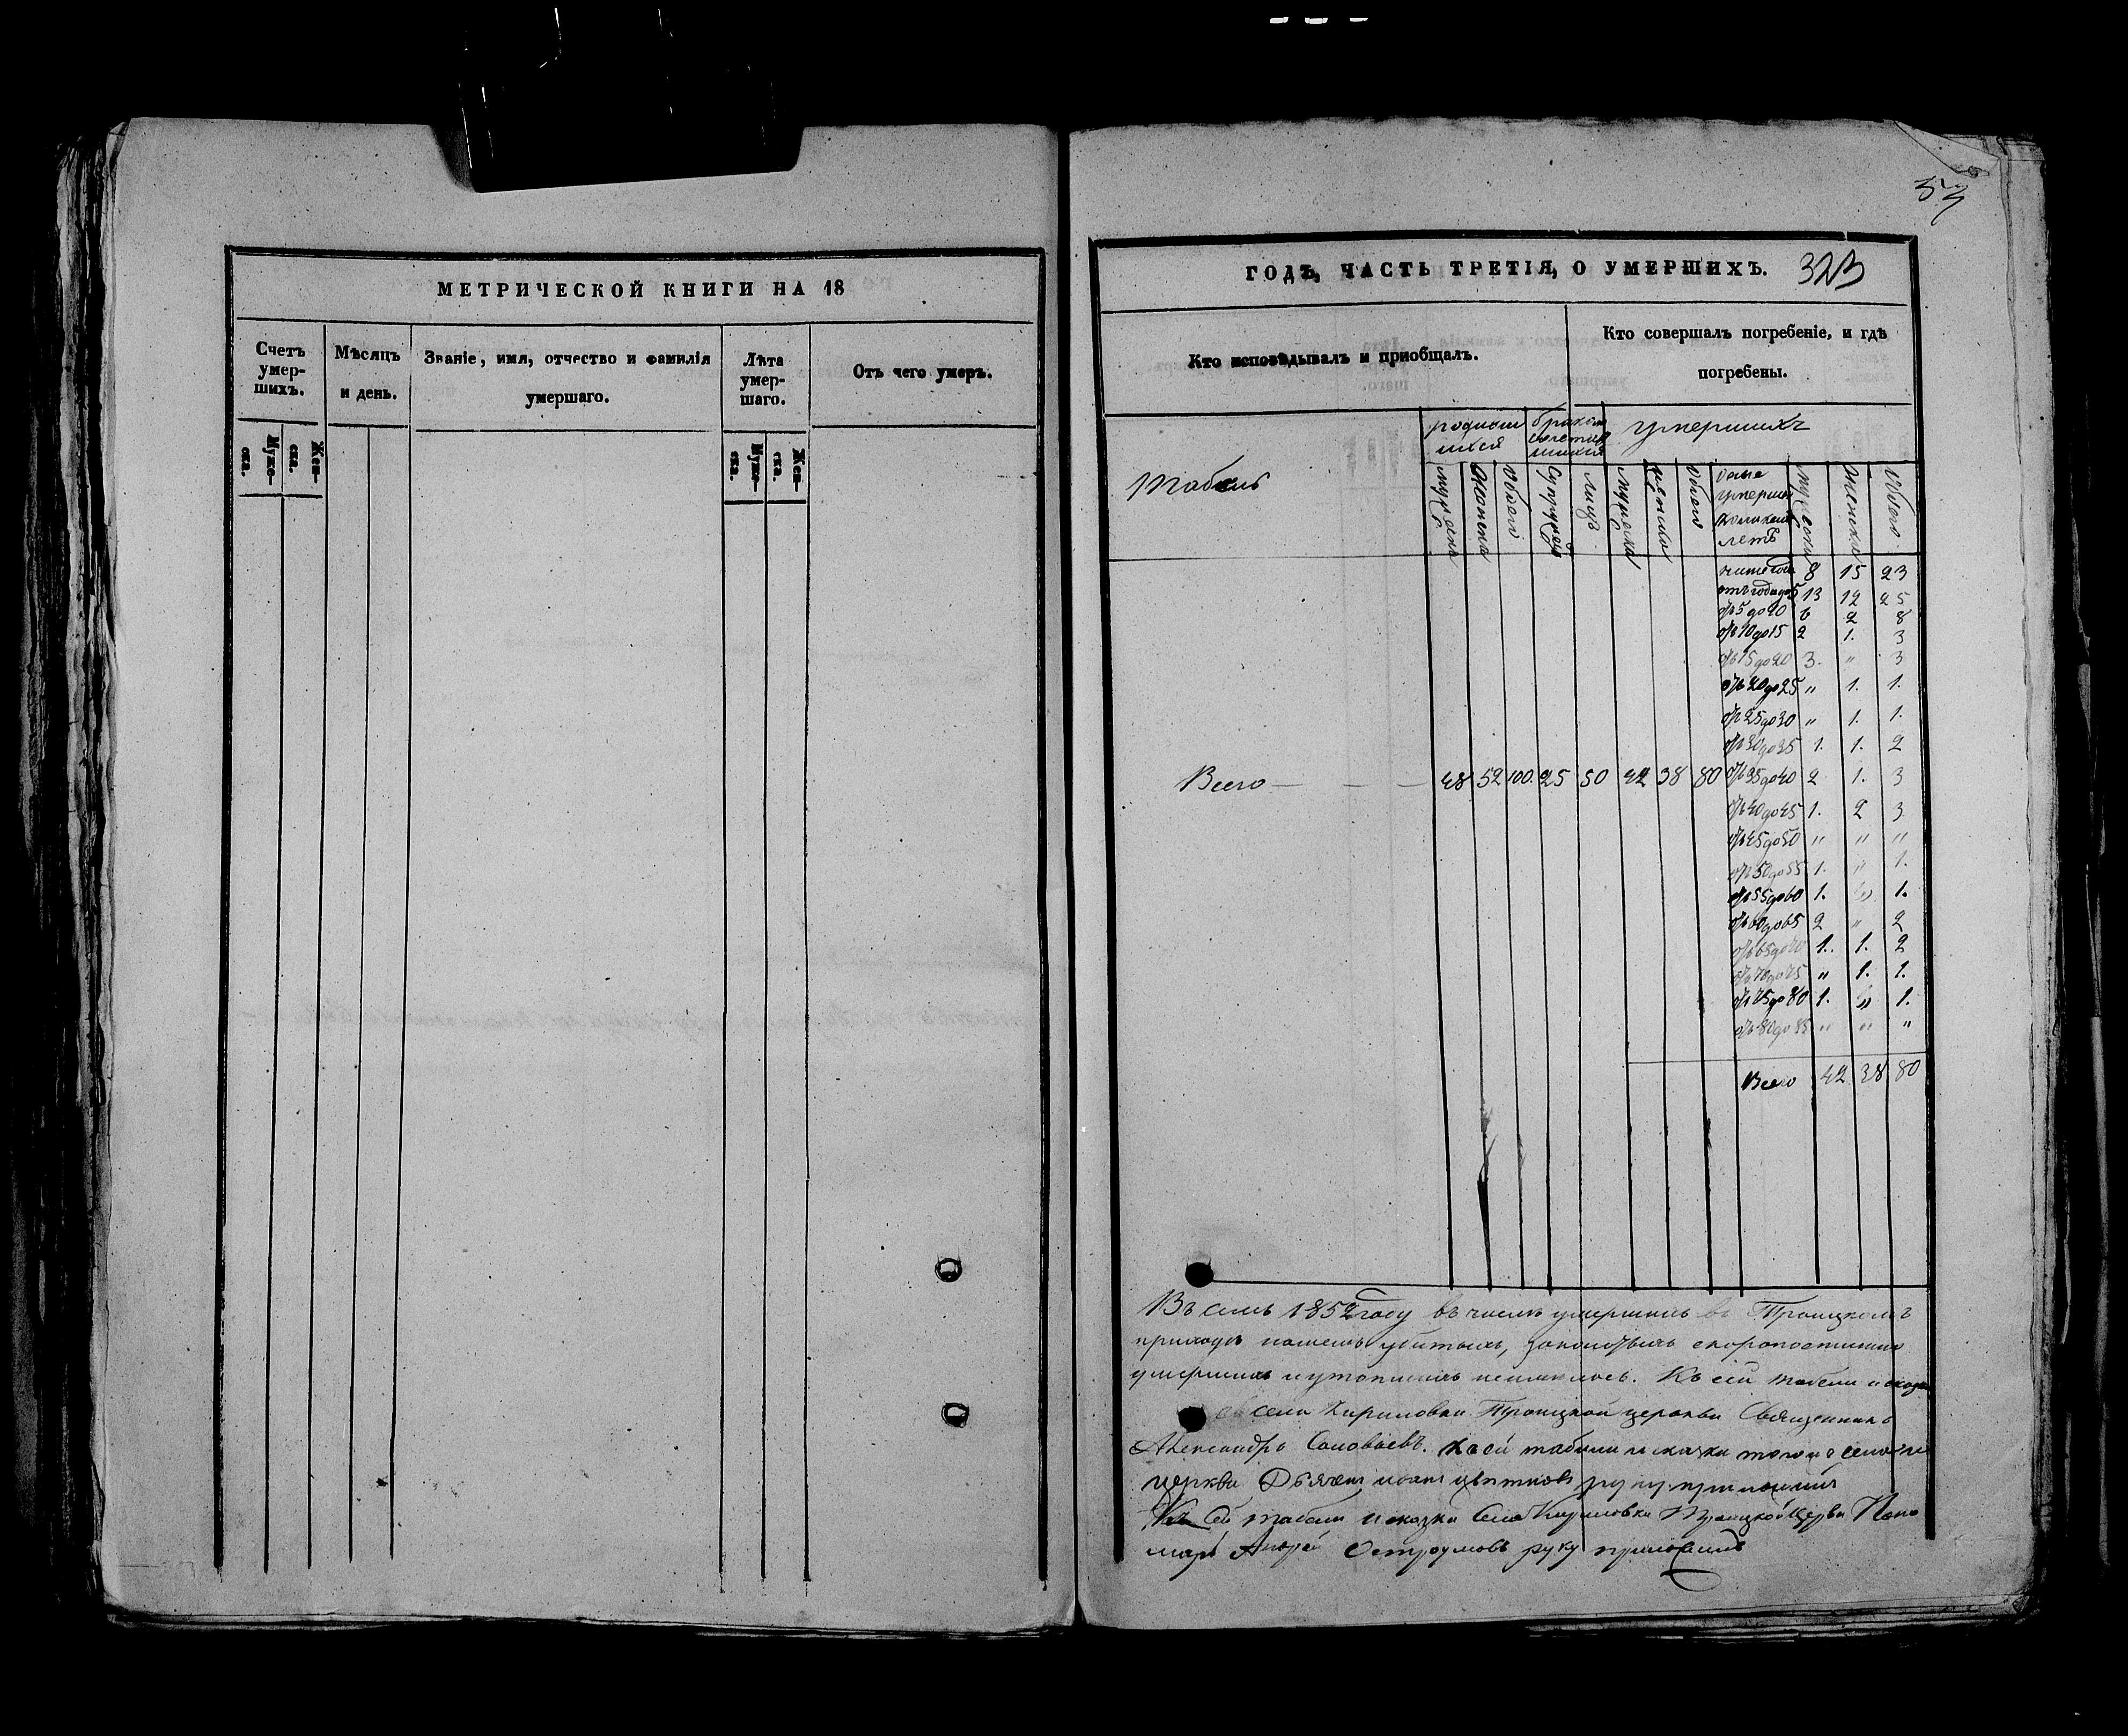 МЕТРИЧЕСКОЙ КНИГИ НА 18
Счетъ умер-шихъ.
Мѣсяцъ и день.
Званіе, имя, отчество и фамилія умершаго.
Лѣта умер-шаго.
Отъ чего умеръ.
Муже-ска.
Жен-ска.
Муже-ска.
Жен-ска.
57
ГОДЪ, ЧАСТЬ ТРЕТІЯ, О УМЕРШИХЪ. 323
Кто исповѣдывалъ и приобщалъ.
Кто совершалъ погребеніе, и гдѣ погребены.
Табель
родившихся
умершихъ
обоего
Супруговъ
лицъ
обоего
лѣтъ
обоего
8 15 23
отъ года до 5 13 12 25
отъ 5 до 10 6 2 8
отъ 10 до 15 2 1. 3
отъ 15 до 20 3. " 3
отъ 20 до 25 " 1. 1.
отъ 25 до 30 " 1. 1.
отъ 30 до 35 1. 1. 2
Всего — — — 48 52 100. 25 50 42 38 80 отъ 35 до 40 2 1. 3
отъ 40 до 45 1. 2 3
отъ 45 до 50 " " "
отъ 50 до 55 1. " 1.
отъ 55 до 60 1. " 1.
отъ 60 до 65 2 " 2
отъ 65 до 70 1. 1. 2
отъ 70 до 75 " 1. 1.
отъ 75 до 80 1. " 1.
отъ 80 до 85 " " "
Всего 42 38 80
Въ семъ 1852 году въ числѣ умершихъ въ Троицкомъ
приходѣ нашемъ убитыхъ, скоропостижно
умершихъ и утопшихъ неимелось. Къ сей табели и сказки
села Кириловки Троицкой церкви Священникъ
Александръ Соловьевъ. Къ сей табели и сказки тогоже села
церкви Дьячекъ Иванъ Цветковъ руку приложилъ
Къ Сей табели и сказки Села Кириловки Троицкой Церкви Поно
марь Андрей Остроумовъ руку приложилъ